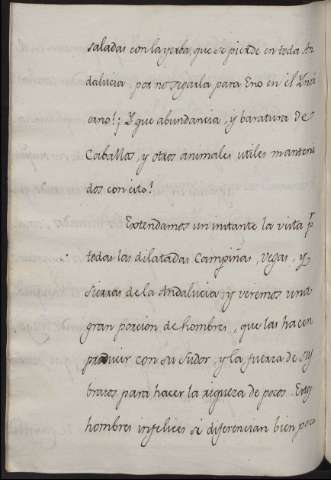 saladas con la yerba, que se pierde en toda An
dalucia, por no segarla para Eno en el Ynvi
erno!; Y que abundancia, y baratura de
Caballos, y otros animales utiles manteni
dos con esto!
Extendamos un instante la vista pr
todas las dilatadas Campiñas, Vegas, y
sierras de la Andalucia, y veremos una
gran porcion de hombres, que las hacen
producir con su sudor, y la fuerza de sus
brazos para hacer la riqueza de pocos. Estos
hombres infelices si diferencian bien poco